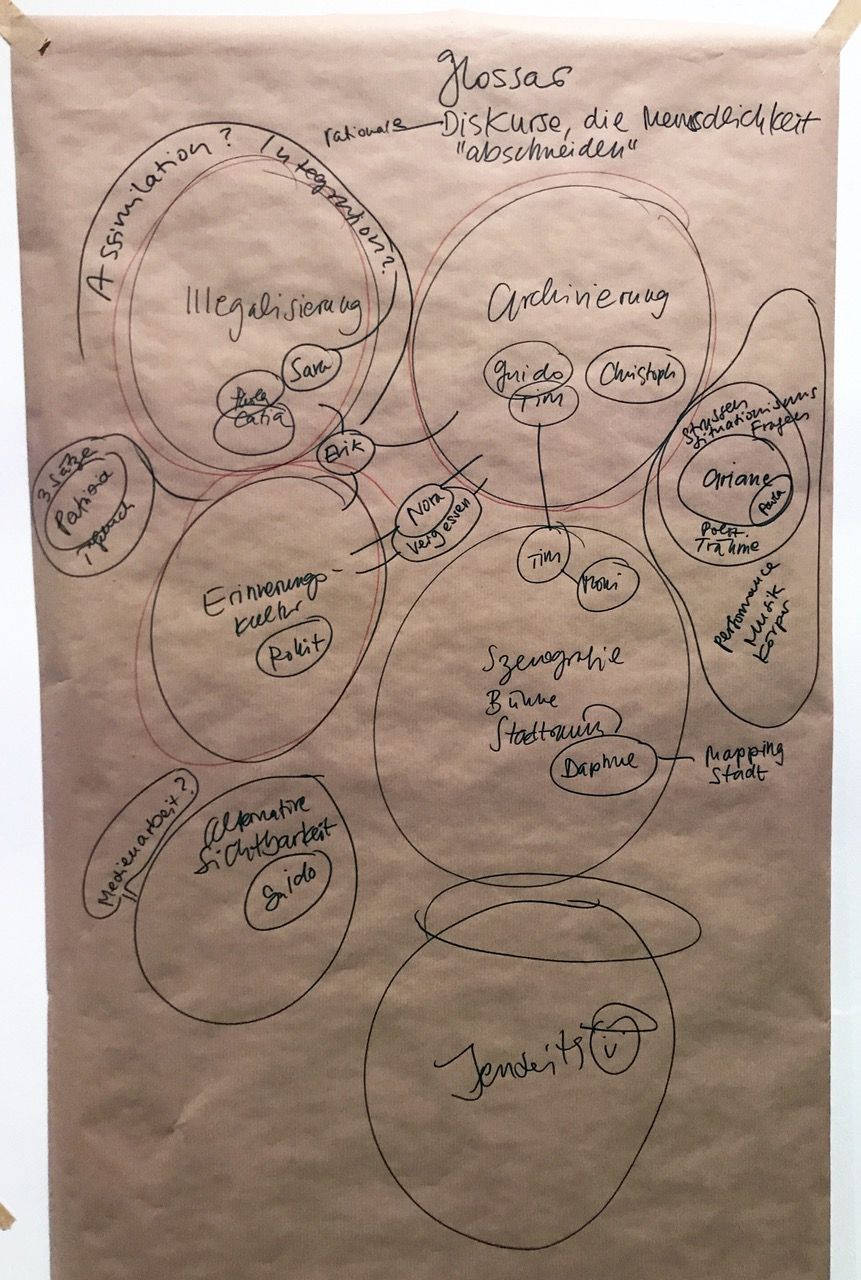 Glossar
rationale
Diskurse, die Menschlichkeit
"abschneiden"
Assimilation? Integration?
Illegalisierung
Sara
Paola
Catia
Erik
Archivierung
Guido
Tim
Christoph
Strassen
Situationismus
Fragen
Ariane
Paola
Poesz.
Träume
Performance
Musik
Körper
3 Sätze
Nora
vergessen
Erinnerungs-
kultur
Rohit
Tim
Szenografie
Bühne
Stadtraum
Daphne
Mapping
Stadt
Medienarbeit?
alternative
Sichtbarkeit
Guido
Jenseits